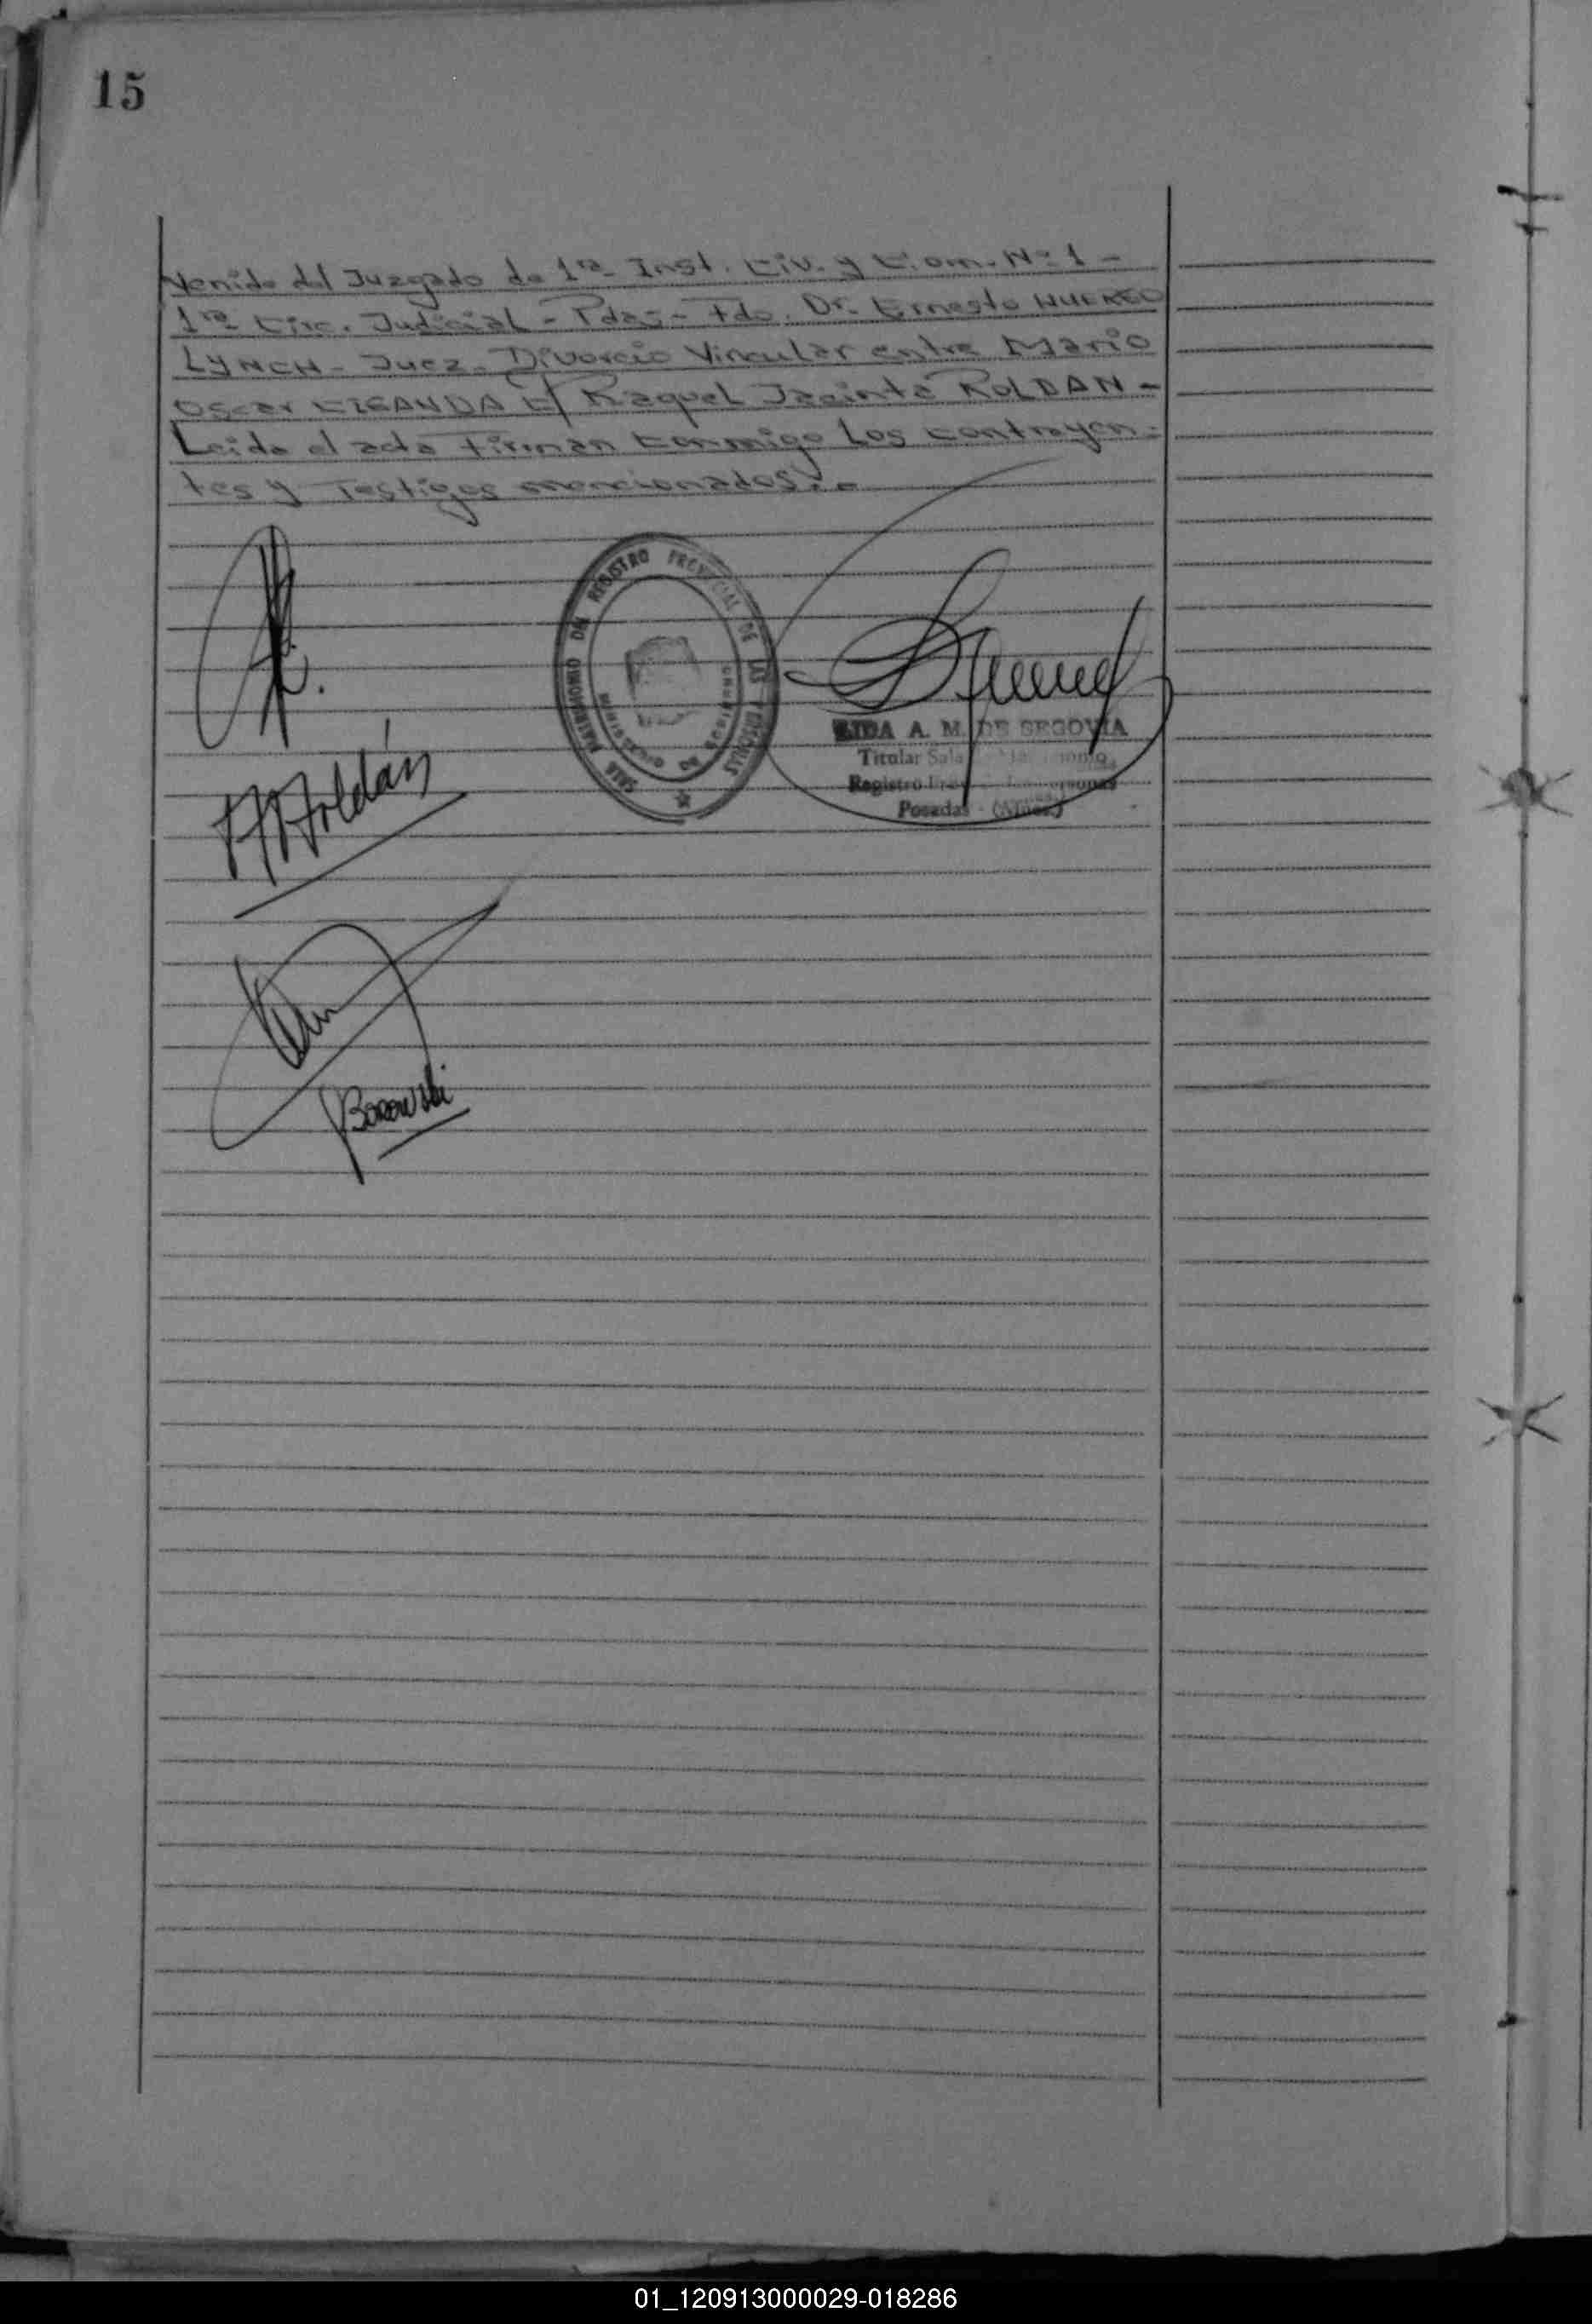 15
Venido del Juzgado de 1ra Inst. Civ. y Com. Nº 1 -
1ra Circ. Judicial - Pdas - Fdo. Dr. Ernesto HUEREO
LYNCH - Juez - Divorcio Vincular entre Mario
Oscar CIGANDA C/ Raquel Jacinta ROLDAN -
Leida el acta firman conmigo los contrayen=
tes y testigos mencionados.-
SALA MATRIMONIO DEL REGISTRO PROVINCIAL DE LAS PERSONAS
LIDA A. M. DE SEGOVIA
Titular Sala
Registro
Posadas - (Mnes.)
Roldán
Borowski
01_120913000029-018286